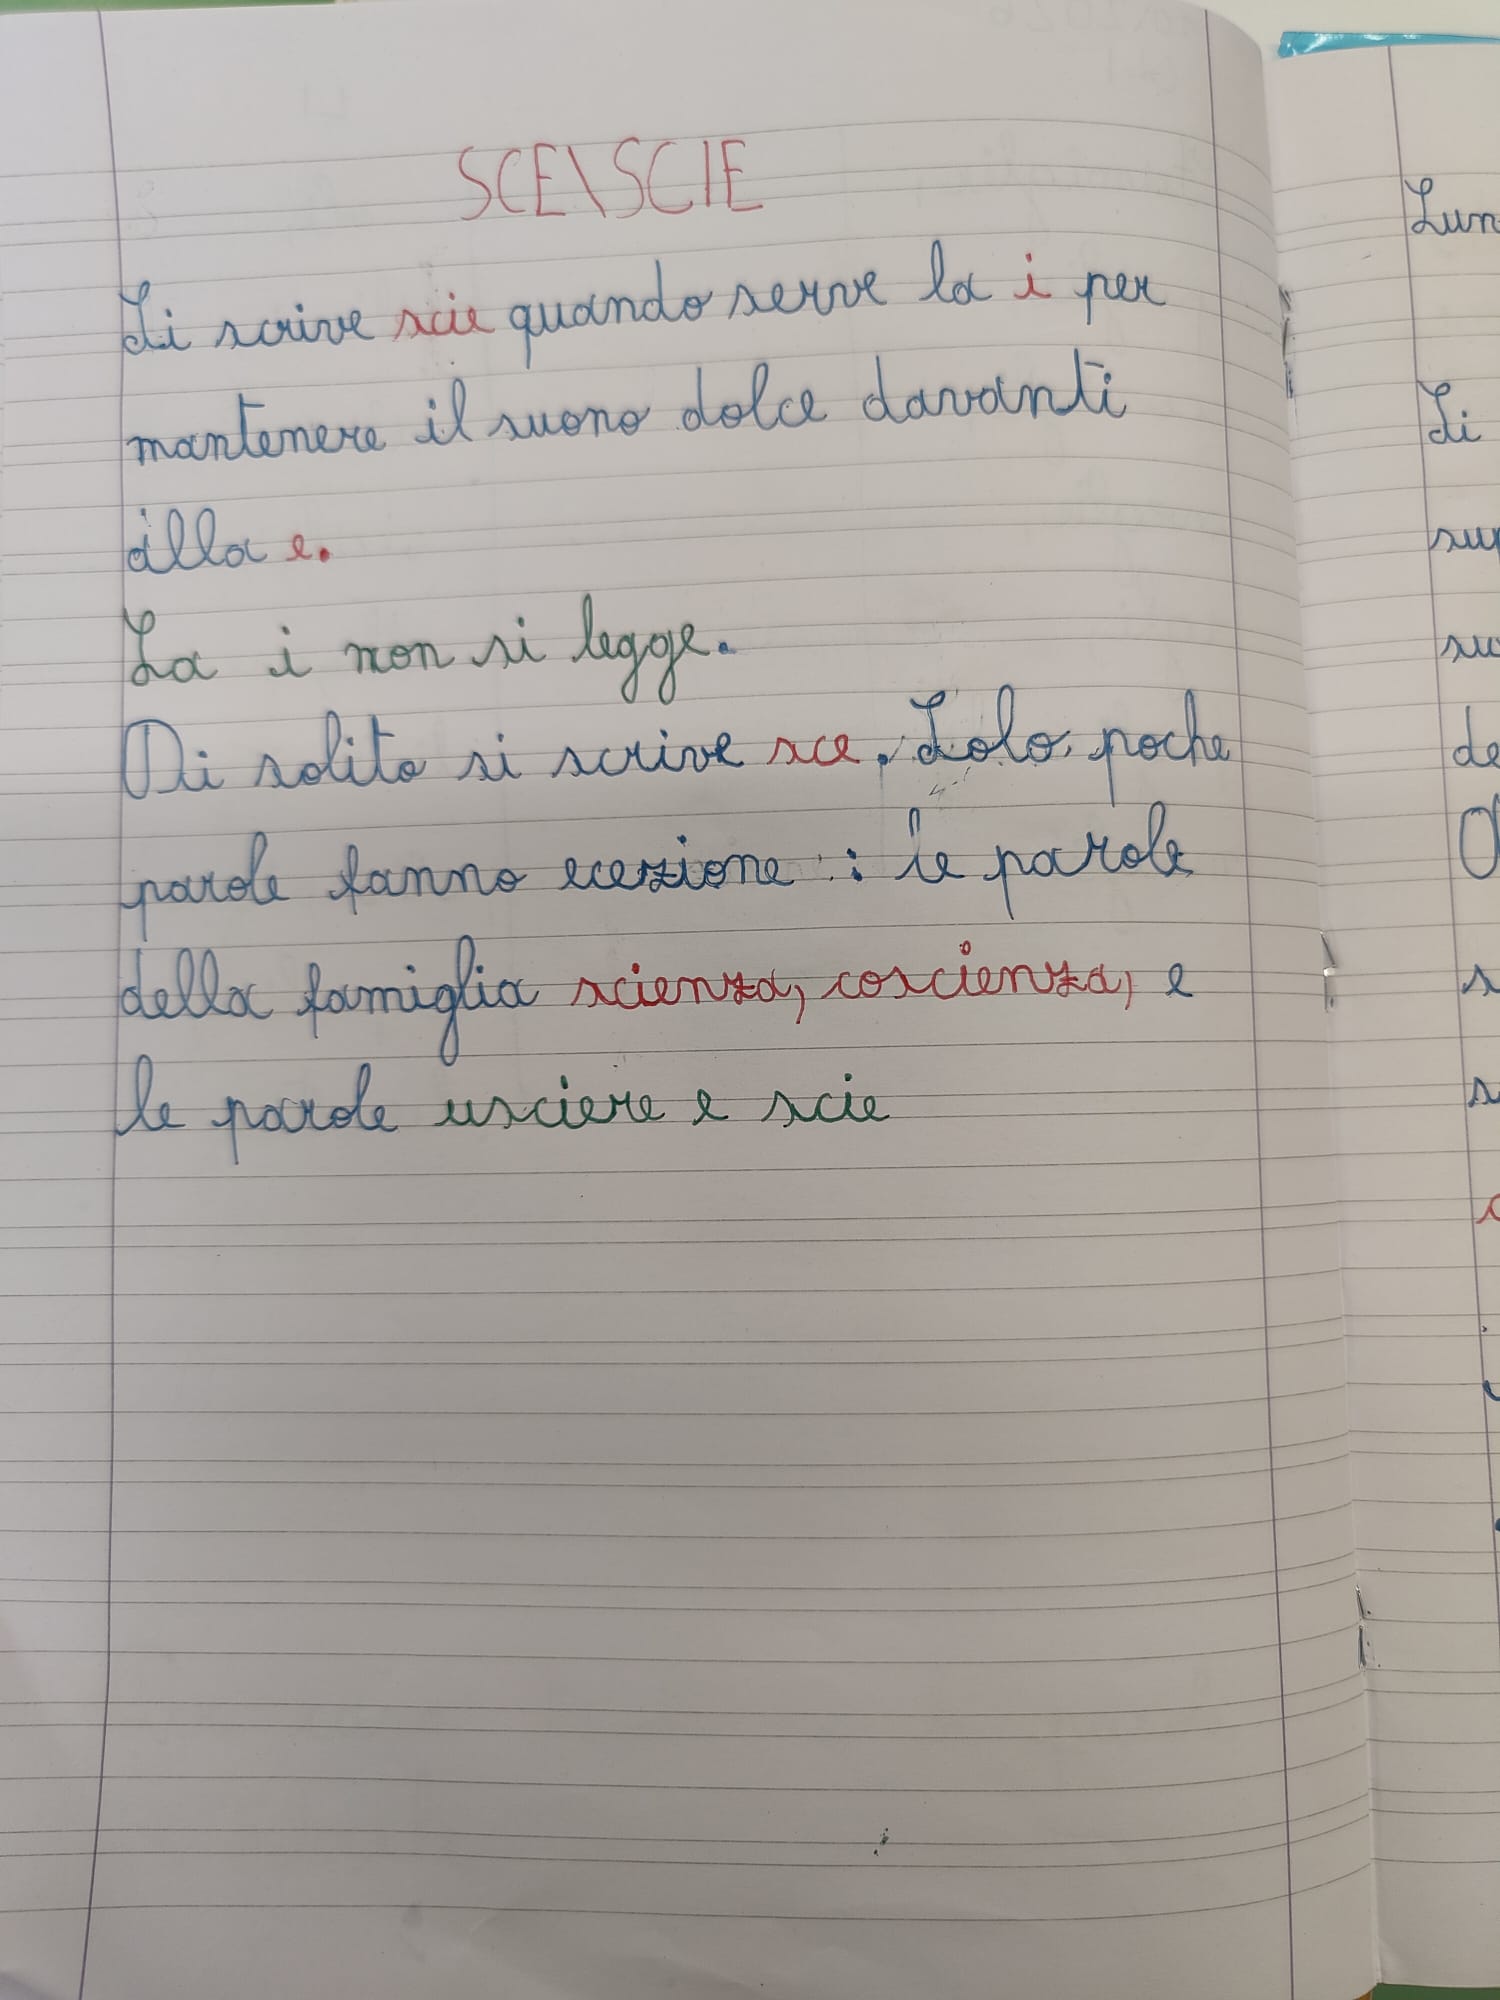 SCE\SCIE
Si scrive scie quando serve la i per
mantenere il suono dolce davanti
alla e.
La i non si legge.
Di solito si scrive sce. Solo poche
parole fanno ecezione : le parole
della famiglia scienza, coscienza, e
le parole usciere e scie
Lun
Si
su
de